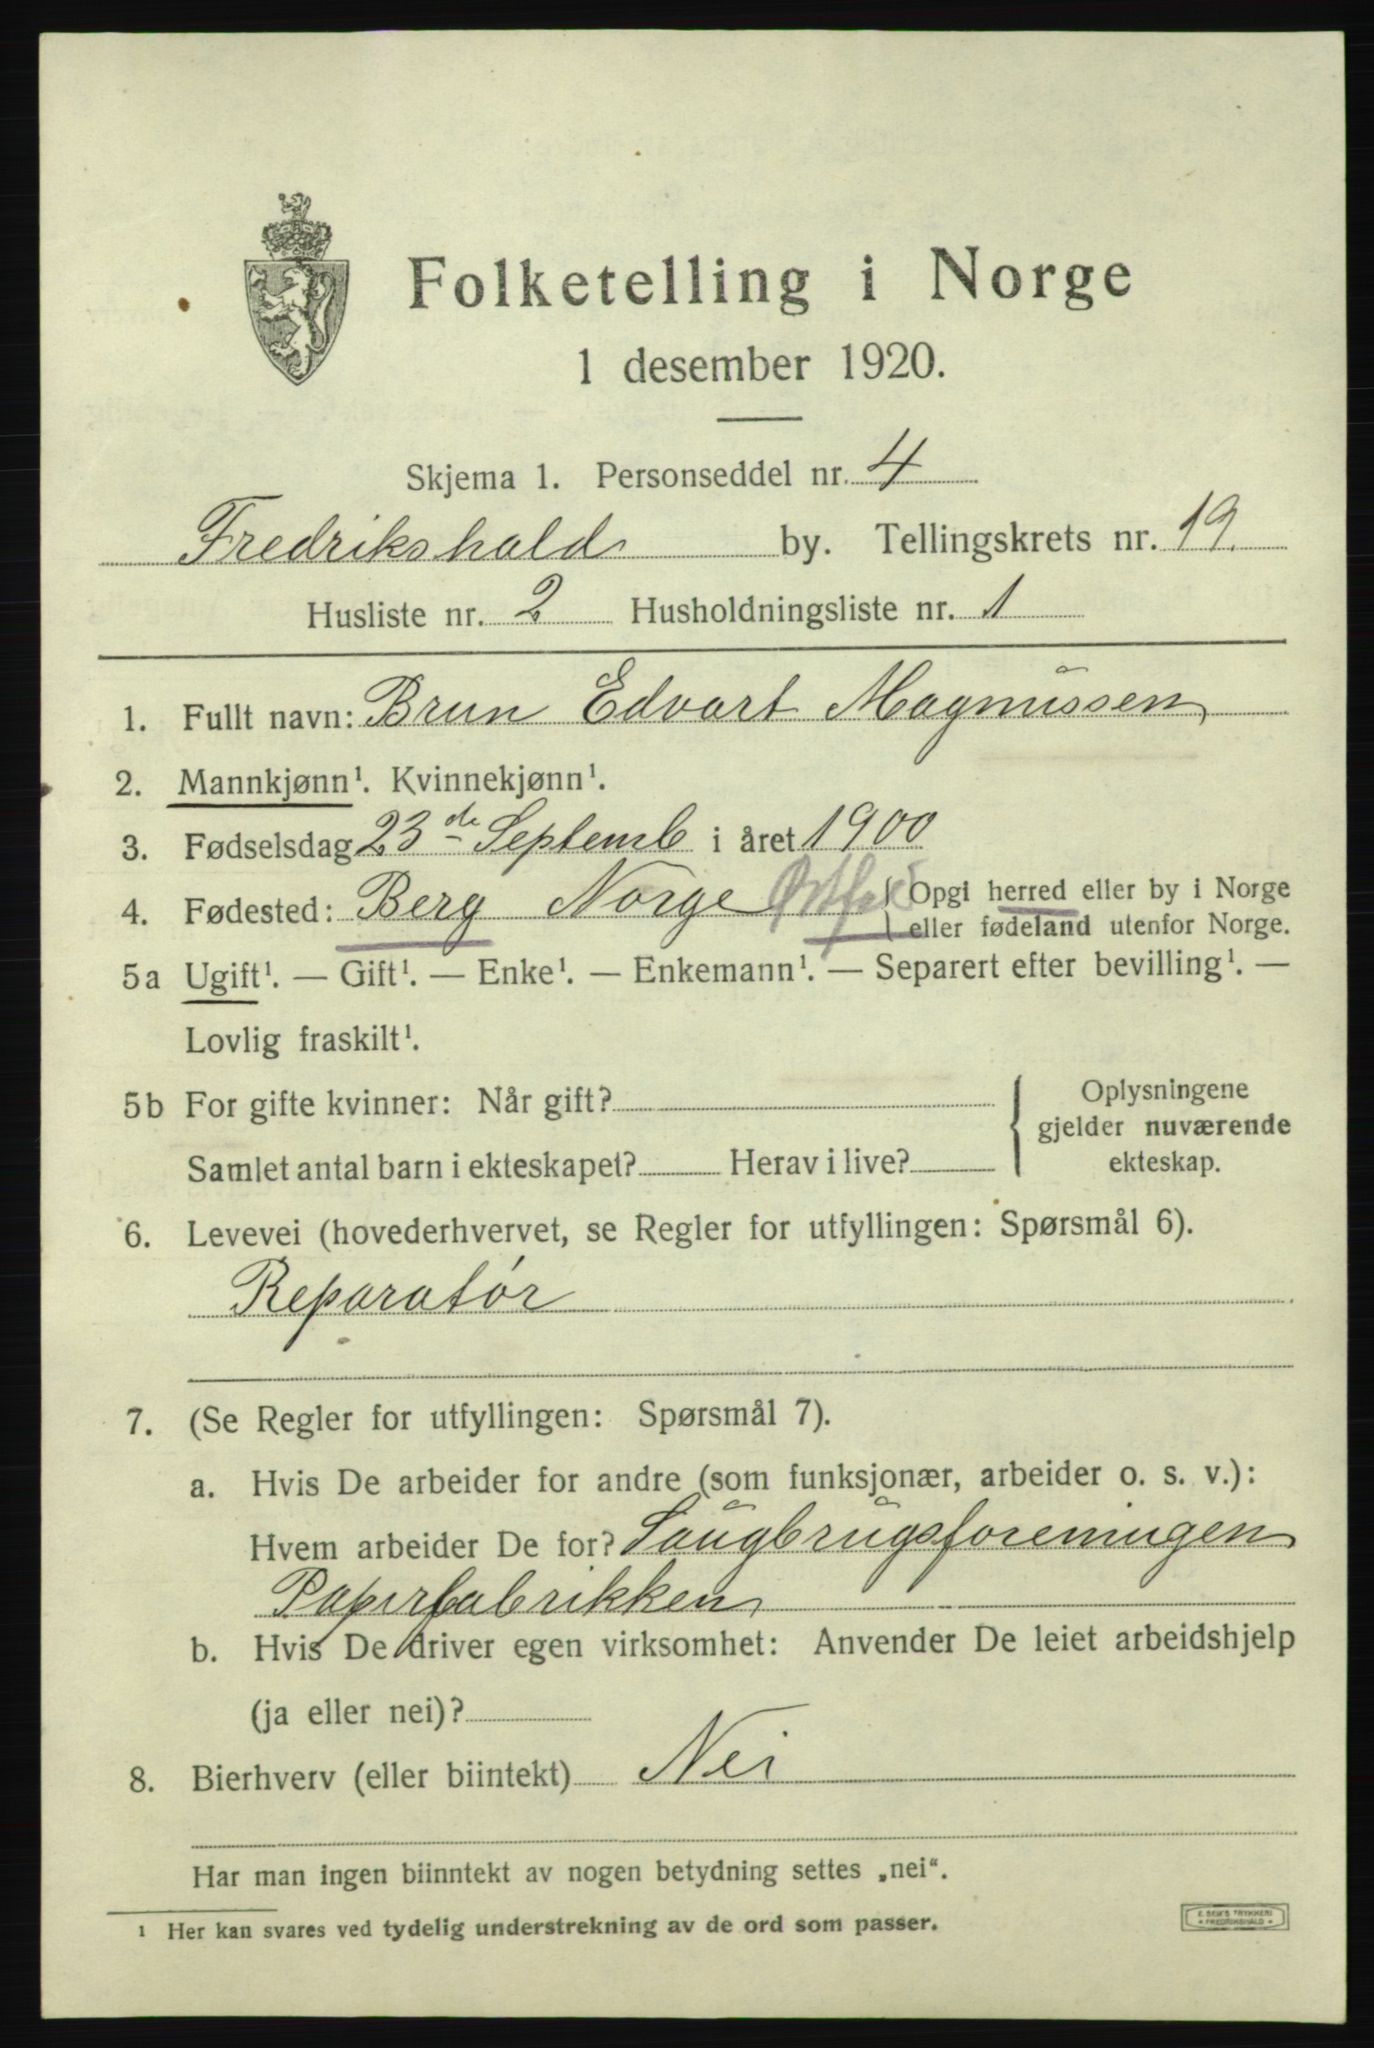 Folketelling i Norge
1 desember 1920.
Skjema 1. Personseddel nr. 4
Fredrikshald by. Tellingskrets nr. 19.
Husliste nr. 2 Husholdningsliste nr. 1
1. Fullt navn: Brun Edvart Magnussen
2. Mannkjønn¹. Kvinnekjønn¹.
3. Fødselsdag 23de Septemb i året 1900
4. Fødested: Berg Norge Østf. { Opgi herred eller by i Norge
eller fødeland utenfor Norge.
5a Ugift¹. — Gift¹. — Enke¹. — Enkemann¹. — Separert efter bevilling¹. —
Lovlig fraskilt¹.
5b For gifte kvinner: Når gift?
Samlet antal barn i ekteskapet? Herav i live?
Oplysningene
gjelder nuværende
ekteskap.
6. Levevei (hovederhvervet, se Regler for utfyllingen: Spørsmål 6).
Reparatør
7. (Se Regler for utfyllingen: Spørsmål 7).
a. Hvis De arbeider for andre (som funksjonær, arbeider o. s. v.):
Hvem arbeider De for? Saugbrugsforeningen
Papirfabrikken
b. Hvis De driver egen virksomhet: Anvender De leiet arbeidshjelp
(ja eller nei)?
8. Bierhverv (eller biintekt) Nei
Har man ingen biinntekt av nogen betydning settes „nei“.
¹ Her kan svares ved tydelig understrekning av de ord som passer.
E. SEM'S TRYKKERI
FREDRIKSHALD